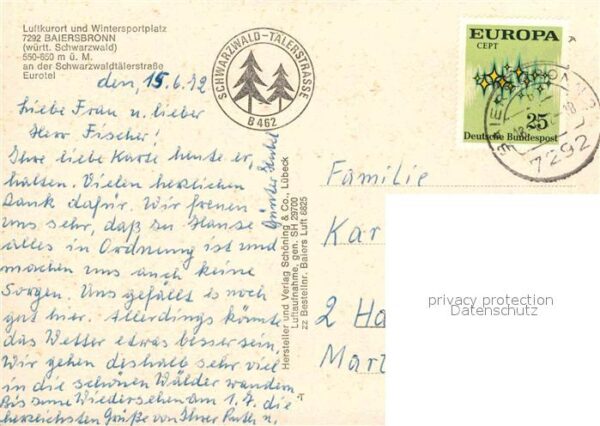 Luftkurort und Wintersportplatz
7292 BAIERSBRONN
(württ. Schwarzwald)
550-650 m ü. M.
an der Schwarzwaldtälerstraße
Eurotel
SCHWARZWALD-TÄLERSTRASSE
B 462
EUROPA
CEPT
25
Deutsche Bundespost
7292
den, 15.6.72
Liebe Frau u. lieber
Herr Fischer!
Ihre liebe Karte heute er,
halten. Vielen herzlichen
Dank dafür. Wir freuen
uns sehr, daß zu Hause
alles in Ordnung ist und
machen uns auch keine
Sorgen. Uns gefällt es noch
gut hier. Allerdings könnte
das Wetter etwas besser sein,
Wir gehen deshalb sehr viel
in die schönen Wälder wandern
Bis zum Wiedersehen am 1.7. die
herzlichsten Grüße von Ihrer Ruth u.
Günter
Hersteller und Verlag Schöning & Co., Lübeck
Luftaufnahme, gen. SH 29700
zz Bestellnr. Baiers Luft 6825
Familie
Kar
2 Ha
Mar
privacy protection
Datenschutz